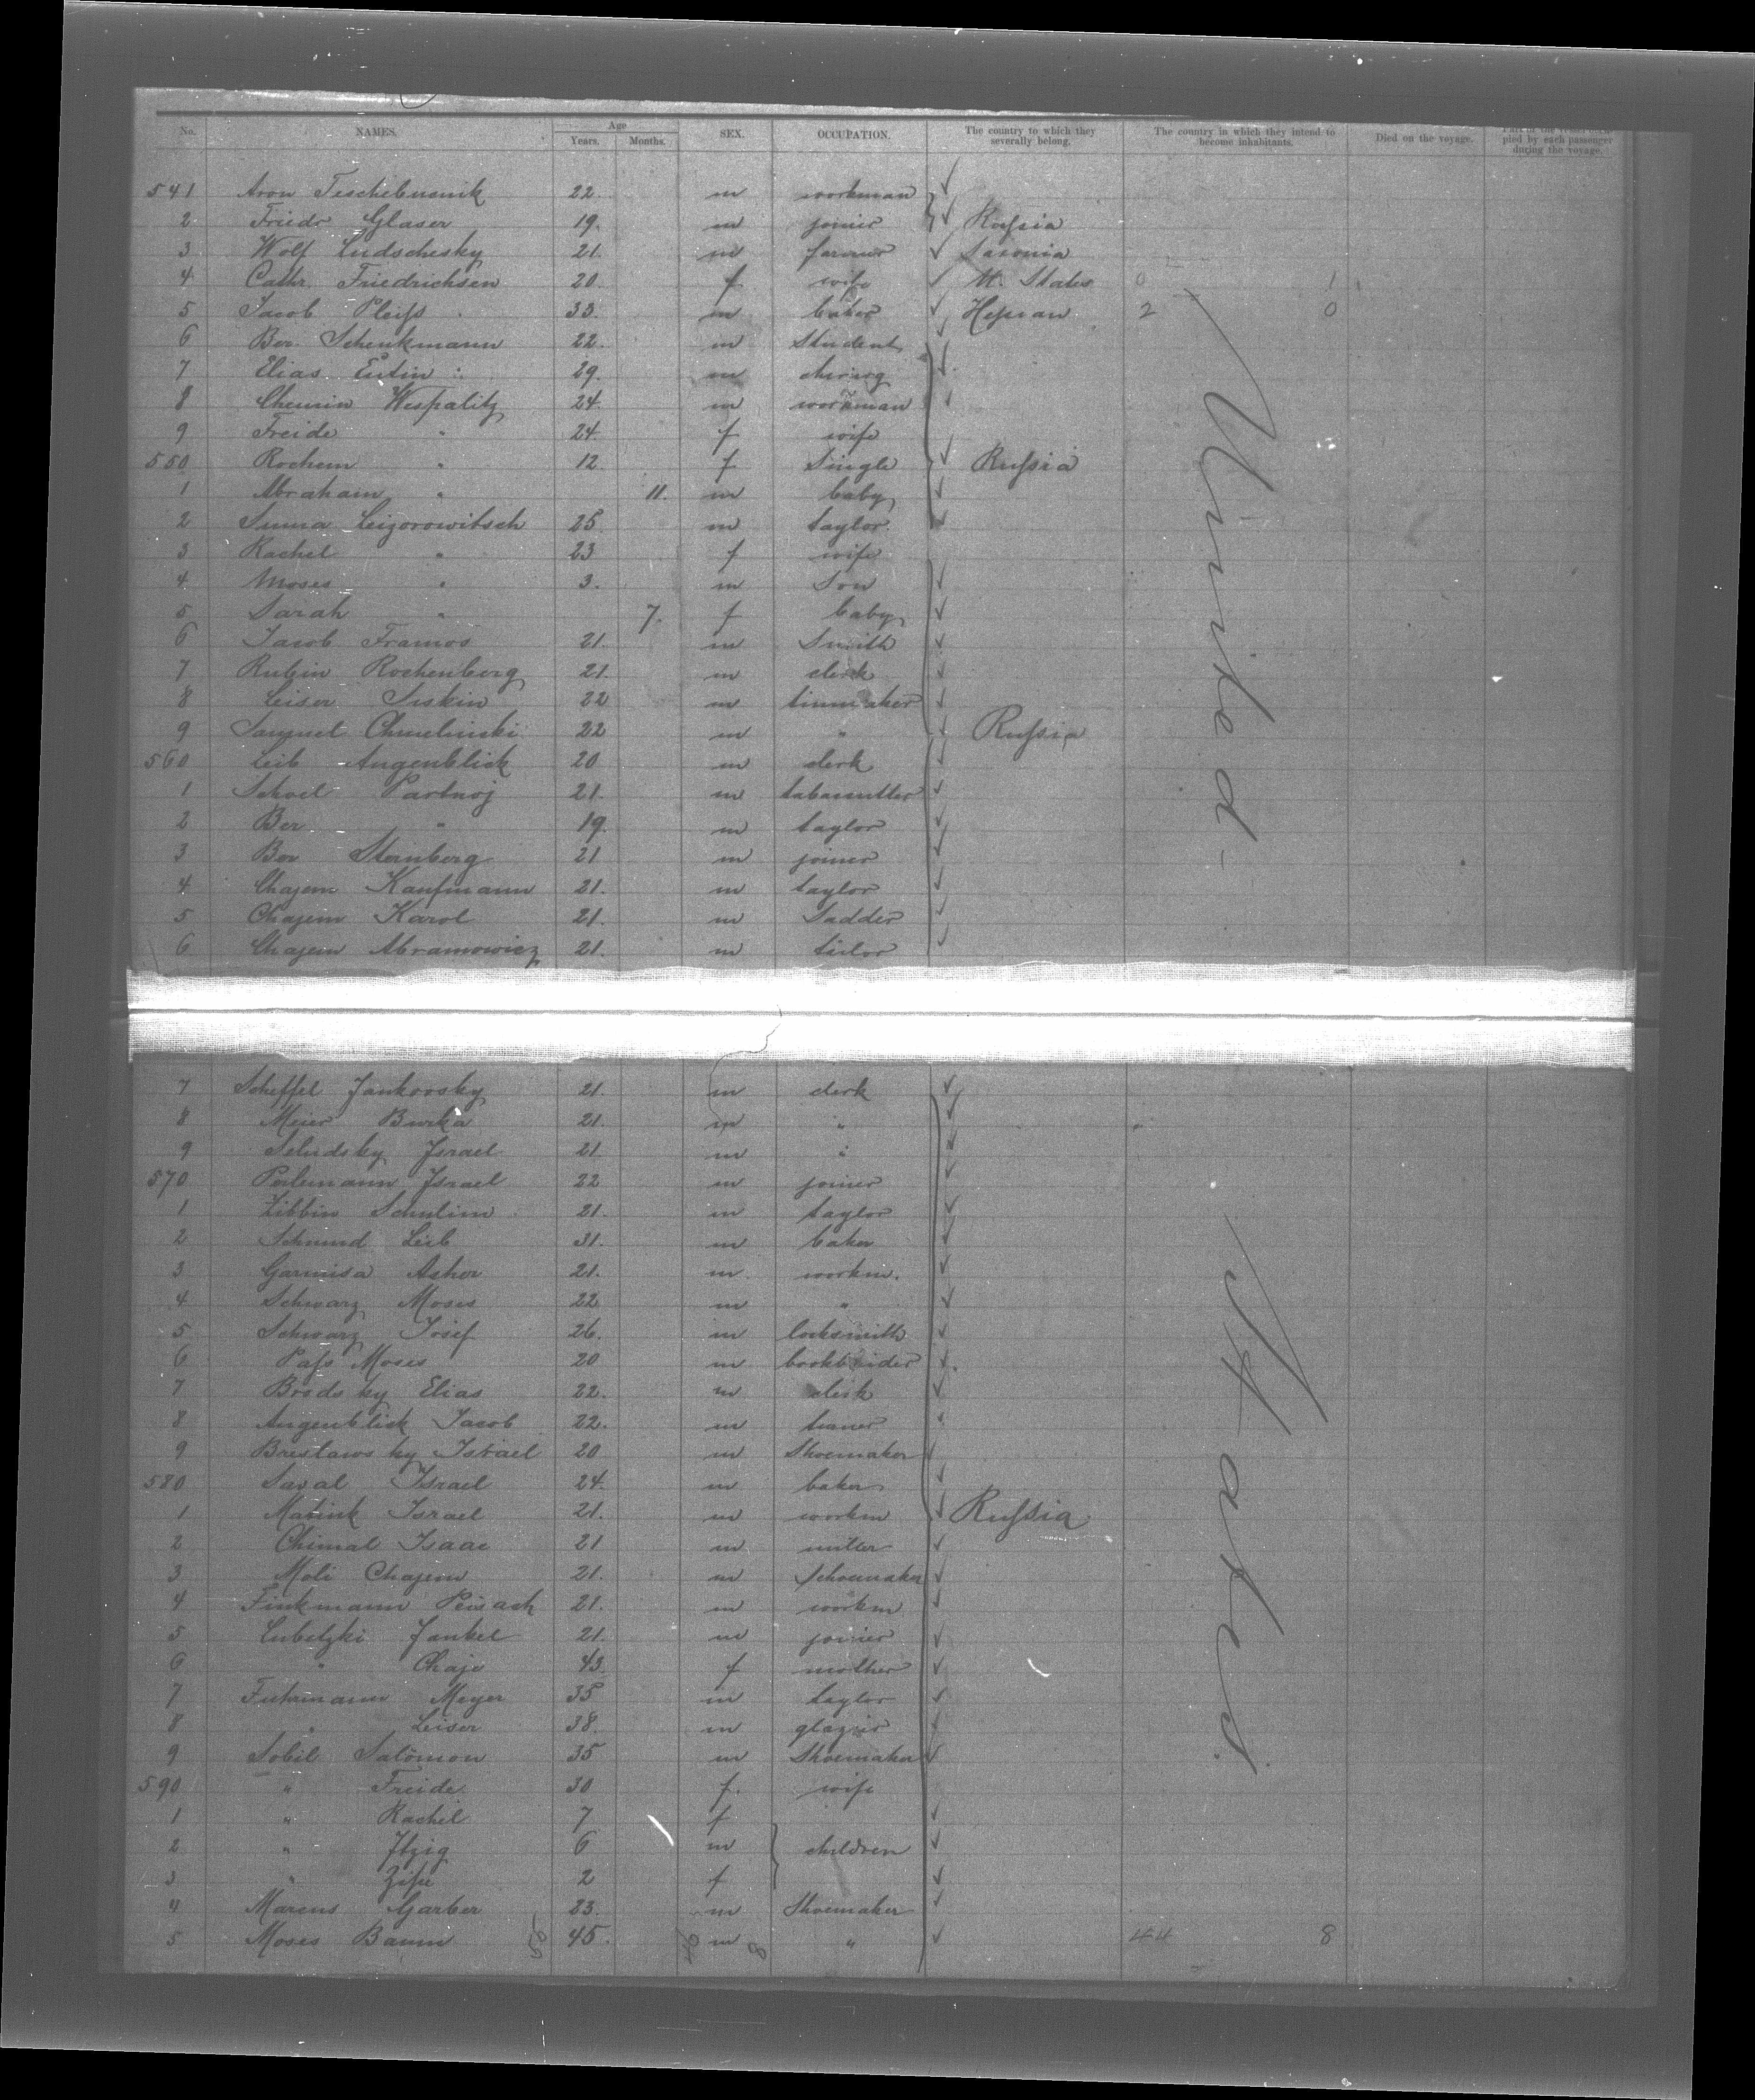 No. NAMES. Age Years. Months. SEX. OCCUPATION. The country to which they severally belong. The country in which they intend to become inhabitants. Died on the voyage. pied by each passenger during the voyage.
541 Aron 22 m workman
2 Friedr Glaser 19. m joiner Russia
3 Wolf Ludschesky 21. m farmer Saxonia
4 Cathr. Friedrichsen 20. f wife U. States 0 1
5 Jacob Pleiss 33. m baker Hessian 2 0
6 Ber Schenkmann 22. m Student
7 Elias Eutin 29. m chirurg
8 Chemin Wespalitz 24. m workman
9 Freide " 24. f wife
550 Rochem " 12. f Single Russia
1 Abraham " 11. m baby
2 Leizorowitsch 25. m taylor
3 Rachel " 23 f wife
4 Moses " 3. m Son
5 Sarah " 7. f baby
6 Jacob Framos 21. m Smith
7 Rubin Rochenberg 21. m clerk
8 Leiser Siskin 22 m tinmaker
9 Samuel Chmelinski 22 m " Russia
560 Leib Augenblick 20 m clerk
1 Schoel Partnoj 21. m
2 Ber " 19. m taylor
3 Ber Steinberg 21 m joiner
4 Chajem Kaufmann 21. m taylor
5 Chajem Karol 21. m Sadder
6 Chajem Abramowicz 21. m tailor
7 Scheffel Jankovsky 21. m clerk
8 Meier Burka 21. m "
9 Seludsky Israel 21. m "
570 Perlemann Israel 22 m joiner
1 Zibbin Schulim 21. m taylor
2 Schmid Leib 31. m baker
3 Garmisa Asher 21. m workm.
4 Schwarz Moses 22 m "
5 Schwarz Josef 26. m locksmith
6 Pass Moses 20 m bookbinder
7 Brodsky Elias 22. m clerk
8 Augenblick Jacob 22. m
9 Breslawsky Israel 20 m Shoemaker
580 Saval Israel 24. m baker
1 Israel 21. m workm Russia
2 Chimal Isaac 21 m miller
3 Moli Chajem 21. m Schoemaker
4 Finkmann Peisach 21. m workm
5 Lubetzki Jankel 21. m joiner
6 " Chaje 43. f mother
7 Fuhrmann Meyer 35 m taylor
8 " Leiser 38. m glazier
9 Sobel Salomon 35 m Shoemaker
590 " Freide 30 f. wife
1 " Rachel 7 f
2 " Itzig 6 m children
3 " 2 f
4 Marcus Garber 23. m Shoemaker
5 Moses Baum 45. m " 44 8
United-
States